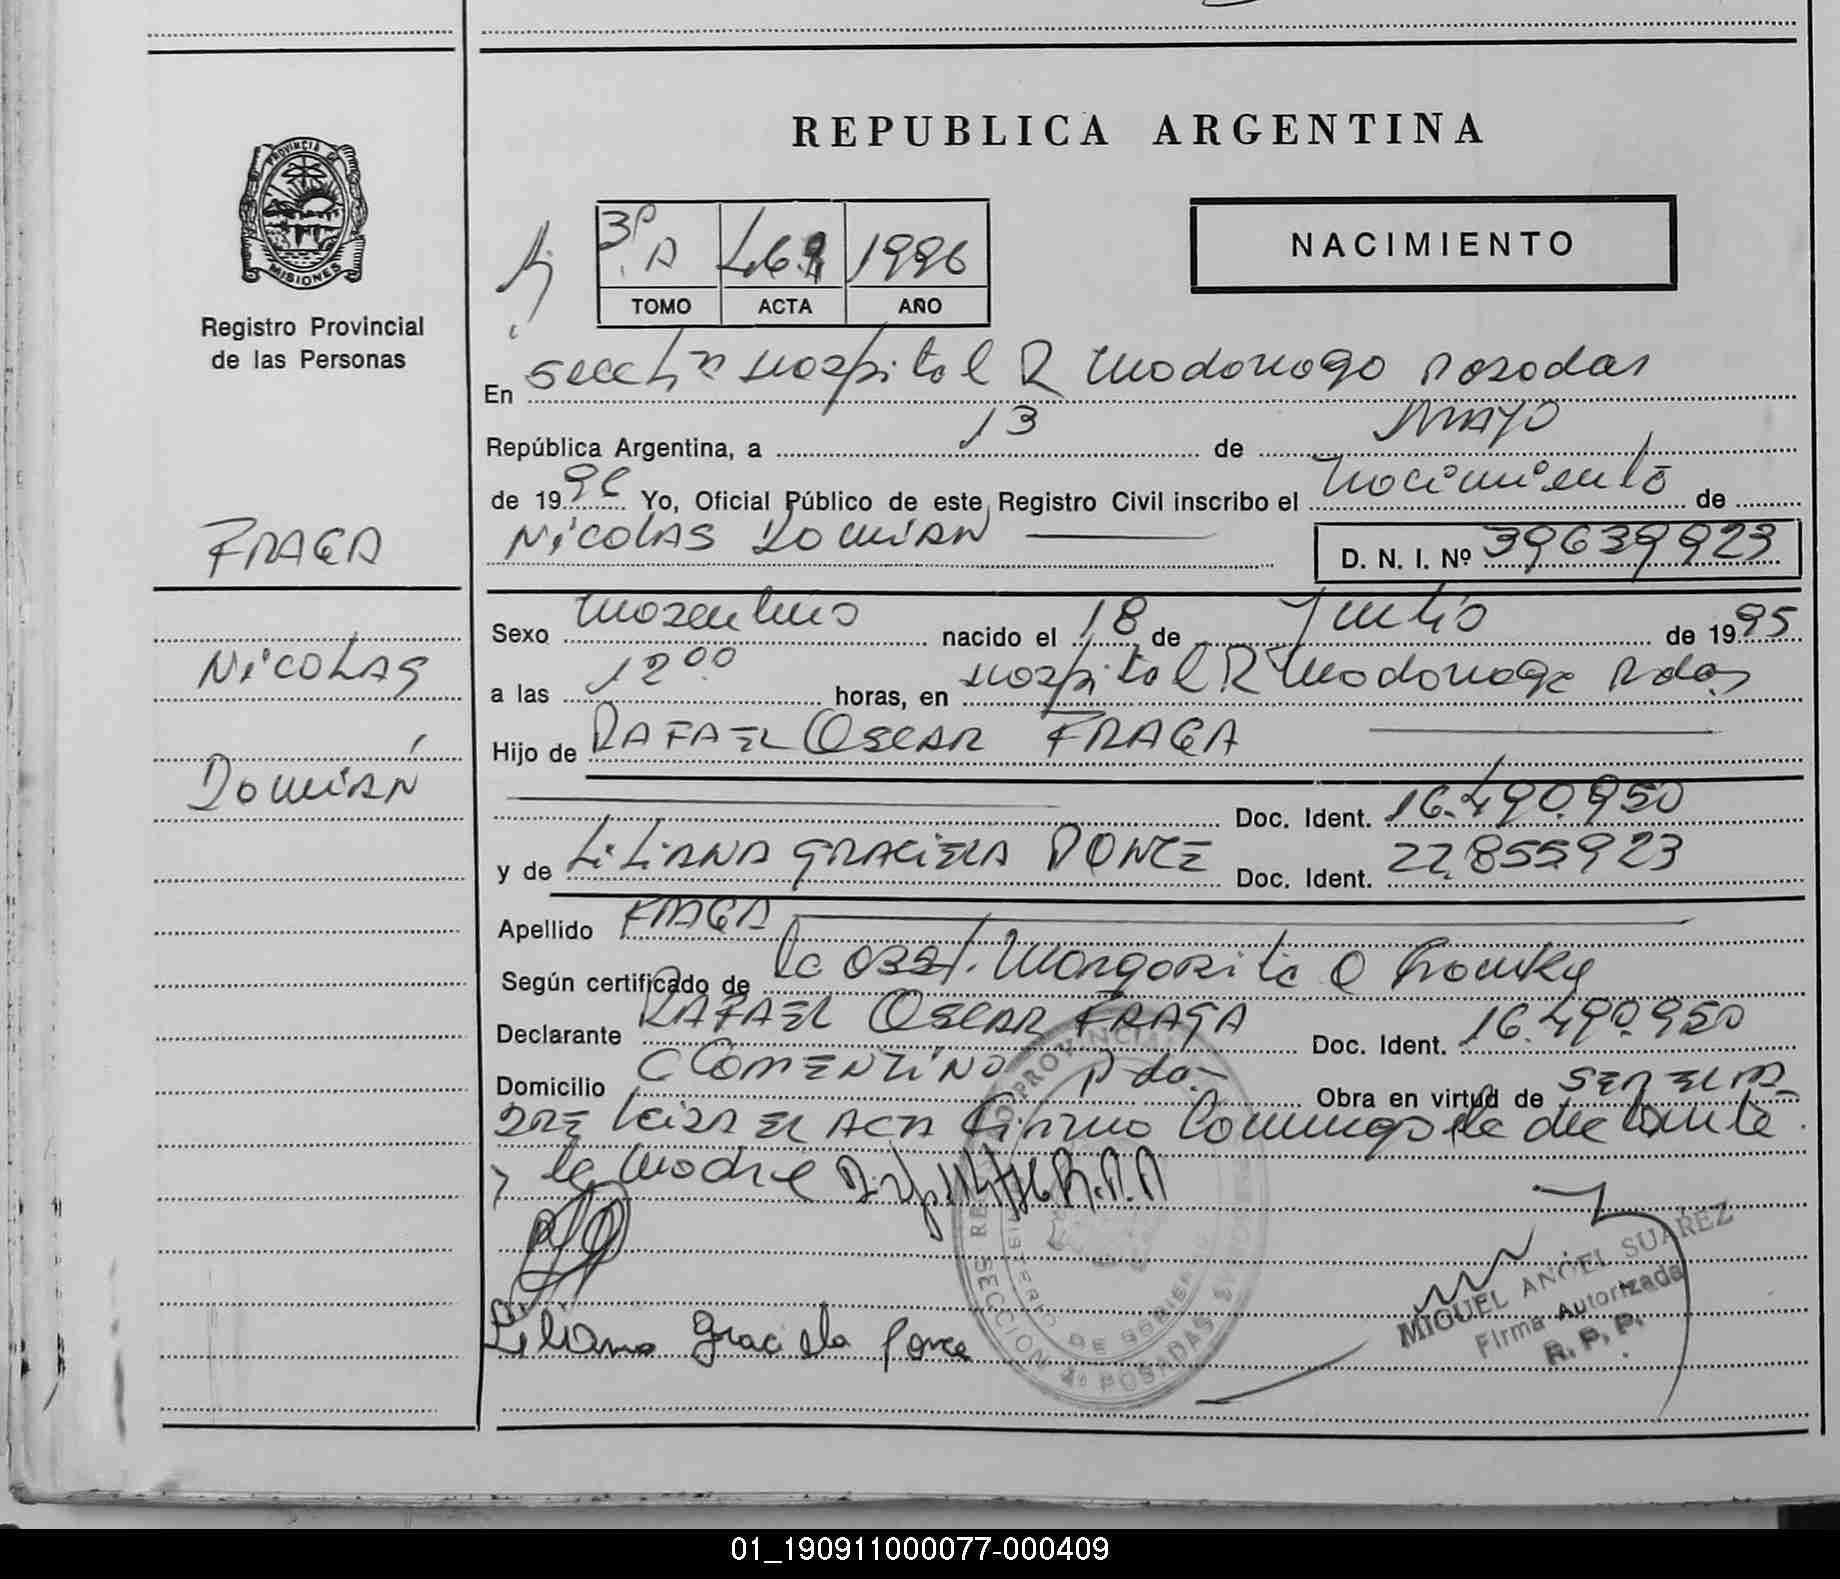 REPUBLICA ARGENTINA
PROVINCIA DE
MISIONES
Registro Provincial
de las Personas
NACIMIENTO
3º A 1996
TOMO ACTA AÑO
En Hospital R Madariaga Posadas
República Argentina, a 13 de MAYO
de 1996 Yo, Oficial Público de este Registro Civil inscribo el nacimiento de
NICOLAS DAMIAN D. N. I. Nº 39639923
FRAGA
Sexo masculino nacido el 18 de de 1995
NICOLAS
a las 12 00 horas, en Hospital R Madariaga Pdas
Hijo de RAFAEL OSCAR FRAGA
DAMIÁN
Doc. Ident. 16.490.950
y de LILIANA GRACIELA PONCE Doc. Ident. 22.855923
Apellido FRAGA
Según certificado de la obst. Margarita
Declarante RAFAEL OSCAR FRAGA Doc. Ident. 16.490.950
Domicilio Pdas Obra en virtud de
EL ACTA Firma conmigo el declarante
y la madre
MIGUEL ANGEL SUAREZ
Firma Autorizada
R. P. P.
Liliana Graciela Ponce
01_190911000077-000409